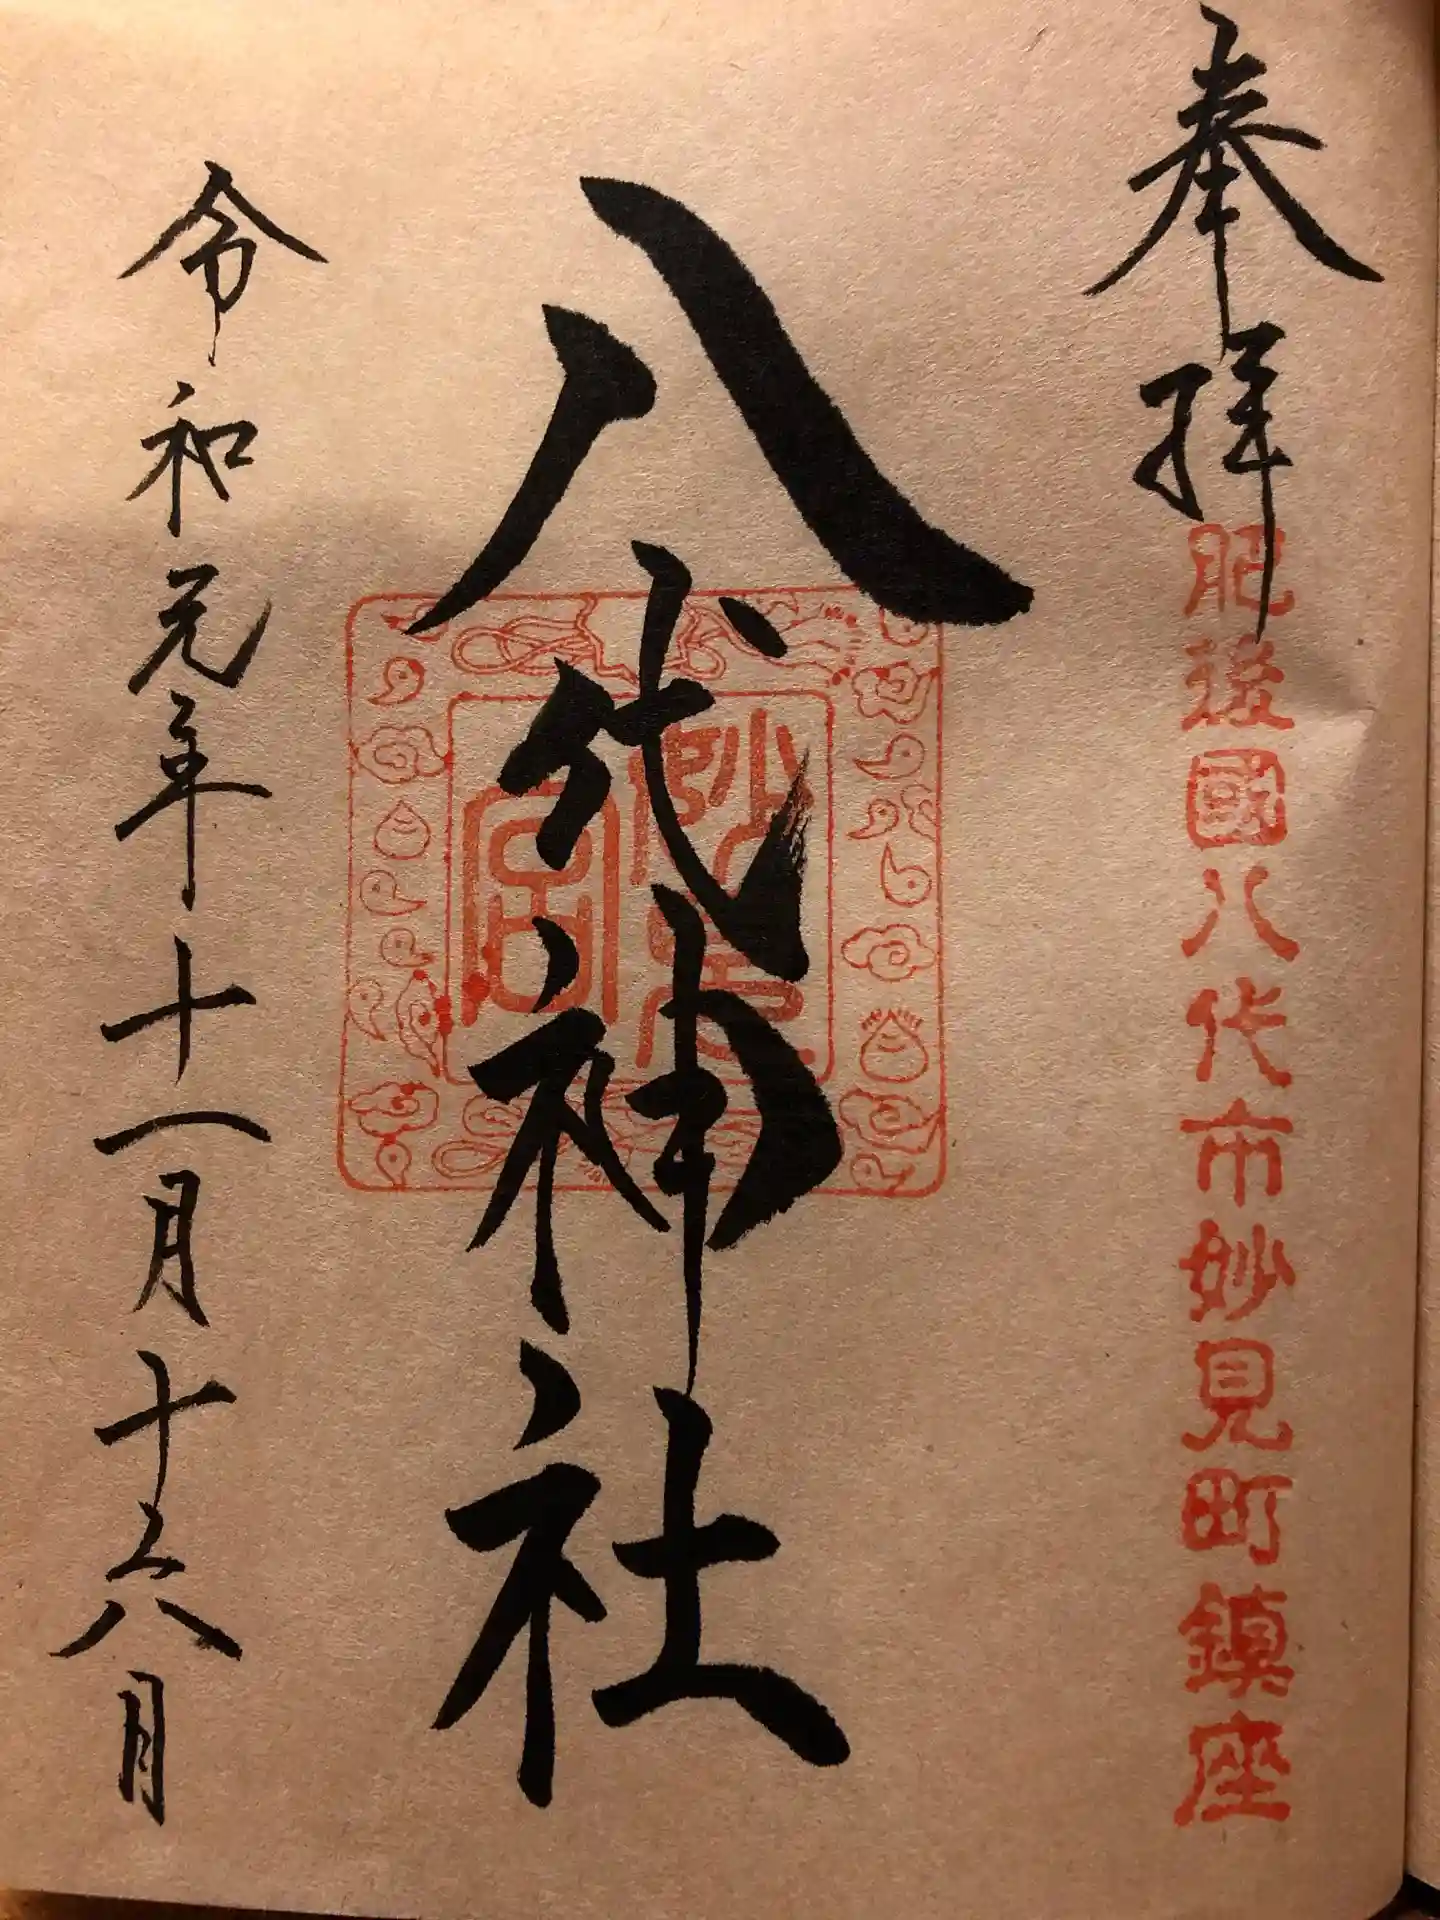 奉拝
肥後國八代市妙見町鎮座
八代神社
妙見宮
令和元年十一月十六日